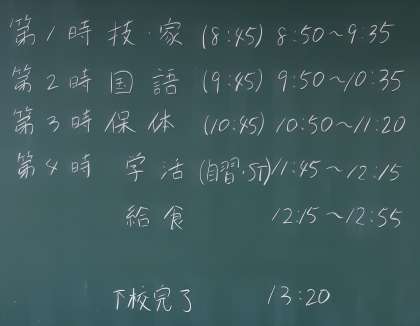 第1時 技・家 (8:45) 8:50～9:35
第2時 国語 (9:45) 9:50～10:35
第3時 保体 (10:45) 10:50～11:20
第4時 学活 (自習・ST) 11:45～12:15
給食 12:15～12:55
下校完了 13:20